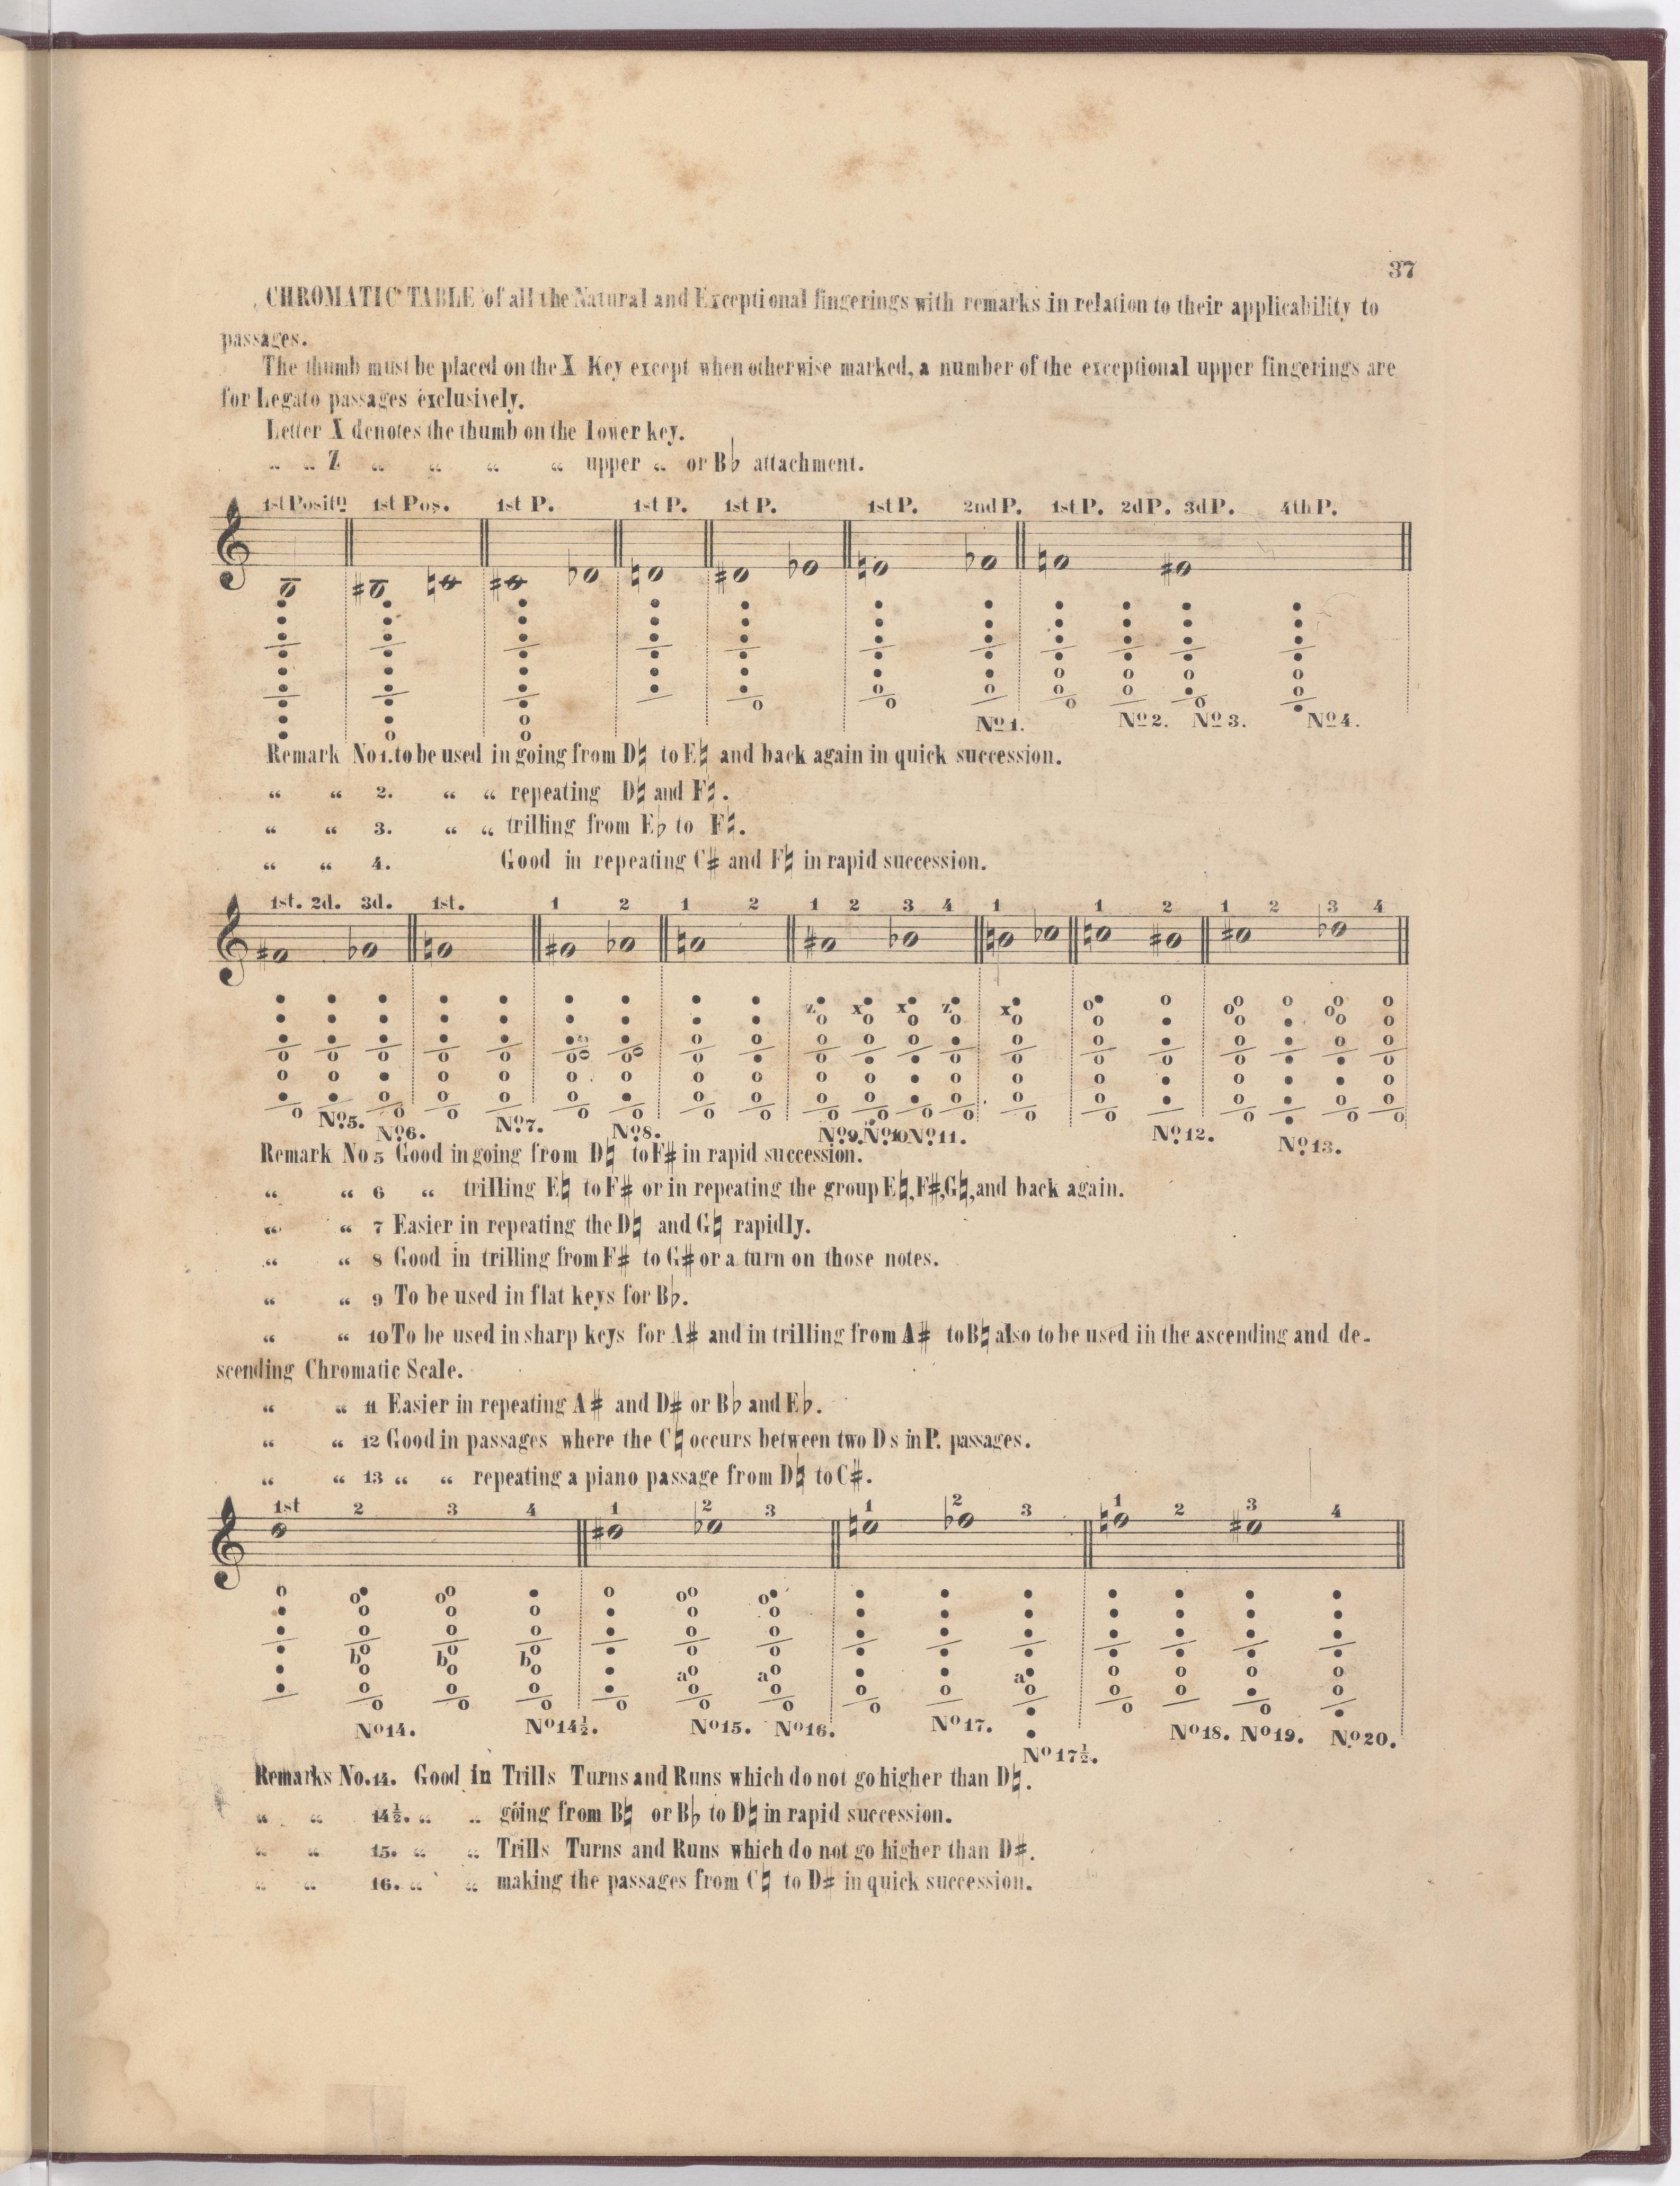 37
CHROMATIC TABLE of all the Natural and Exceptional fingerings with remarks in relation to their applicability to
passages.
The thumb must be placed on the X Key except when otherwise marked, a number of the exceptional upper fingerings are
for Legato passages exclusively.
Letter X denotes the thumb on the lower key.
„ „ Z „ „ „ „ upper „ or B♭ attachment.
1st Positn 1st Pos. 1st P. 1st P. 1st P. 1st P. 2nd P. 1st P. 2d P. 3d P. 4th P.
No 1. No 2. No 3. No 4.
Remark No 1. to be used in going from D♮ to E♮ and back again in quick succession.
“ “ 2. “ “ repeating D♮ and F♮.
“ “ 3. “ “ trilling from E♭ to F♮.
“ “ 4. Good in repeating C♯ and F♮ in rapid succession.
1st. 2d. 3d. 1st. 1 2 1 2 1 2 3 4 1 1 2 1 2 3 4
z x x z x
No. 5. No. 6. No. 7. No. 8. No. 9. No. 10 No. 11. No. 12. No. 13.
Remark No 5 Good in going from D♮ to F♯ in rapid succession.
“ “ 6 “ trilling E♮ to F♯ or in repeating the group E♮, F♯, G♮, and back again.
“ “ 7 Easier in repeating the D♮ and G♮ rapidly.
“ “ 8 Good in trilling from F♯ to G♯ or a turn on those notes.
“ “ 9 To be used in flat keys for B♭.
“ “ 10 To be used in sharp keys for A♯ and in trilling from A♯ to B♮ also to be used in the ascending and de-
scending Chromatic Scale.
“ “ 11 Easier in repeating A♯ and D♯ or B♭ and E♭.
“ “ 12 Good in passages where the C♮ occurs between two Ds in P. passages.
“ “ 13 “ “ repeating a piano passage from D♮ to C♯.
1st 2 3 4 1 2 3 1 2 3 1 2 3 4
b b b a a a
No 14. No 14½. No 15. No 16. No 17. No 17½. No 18. No 19. No 20.
Remarks No. 14. Good in Trills Turns and Runs which do not go higher than D♮.
“ “ 14½. „ „ going from B♮ or B♭ to D♮ in rapid succession.
“ “ 15. „ „ Trills Turns and Runs which do not go higher than D♯.
„ „ 16. „ „ making the passages from C♮ to D♯ in quick succession.